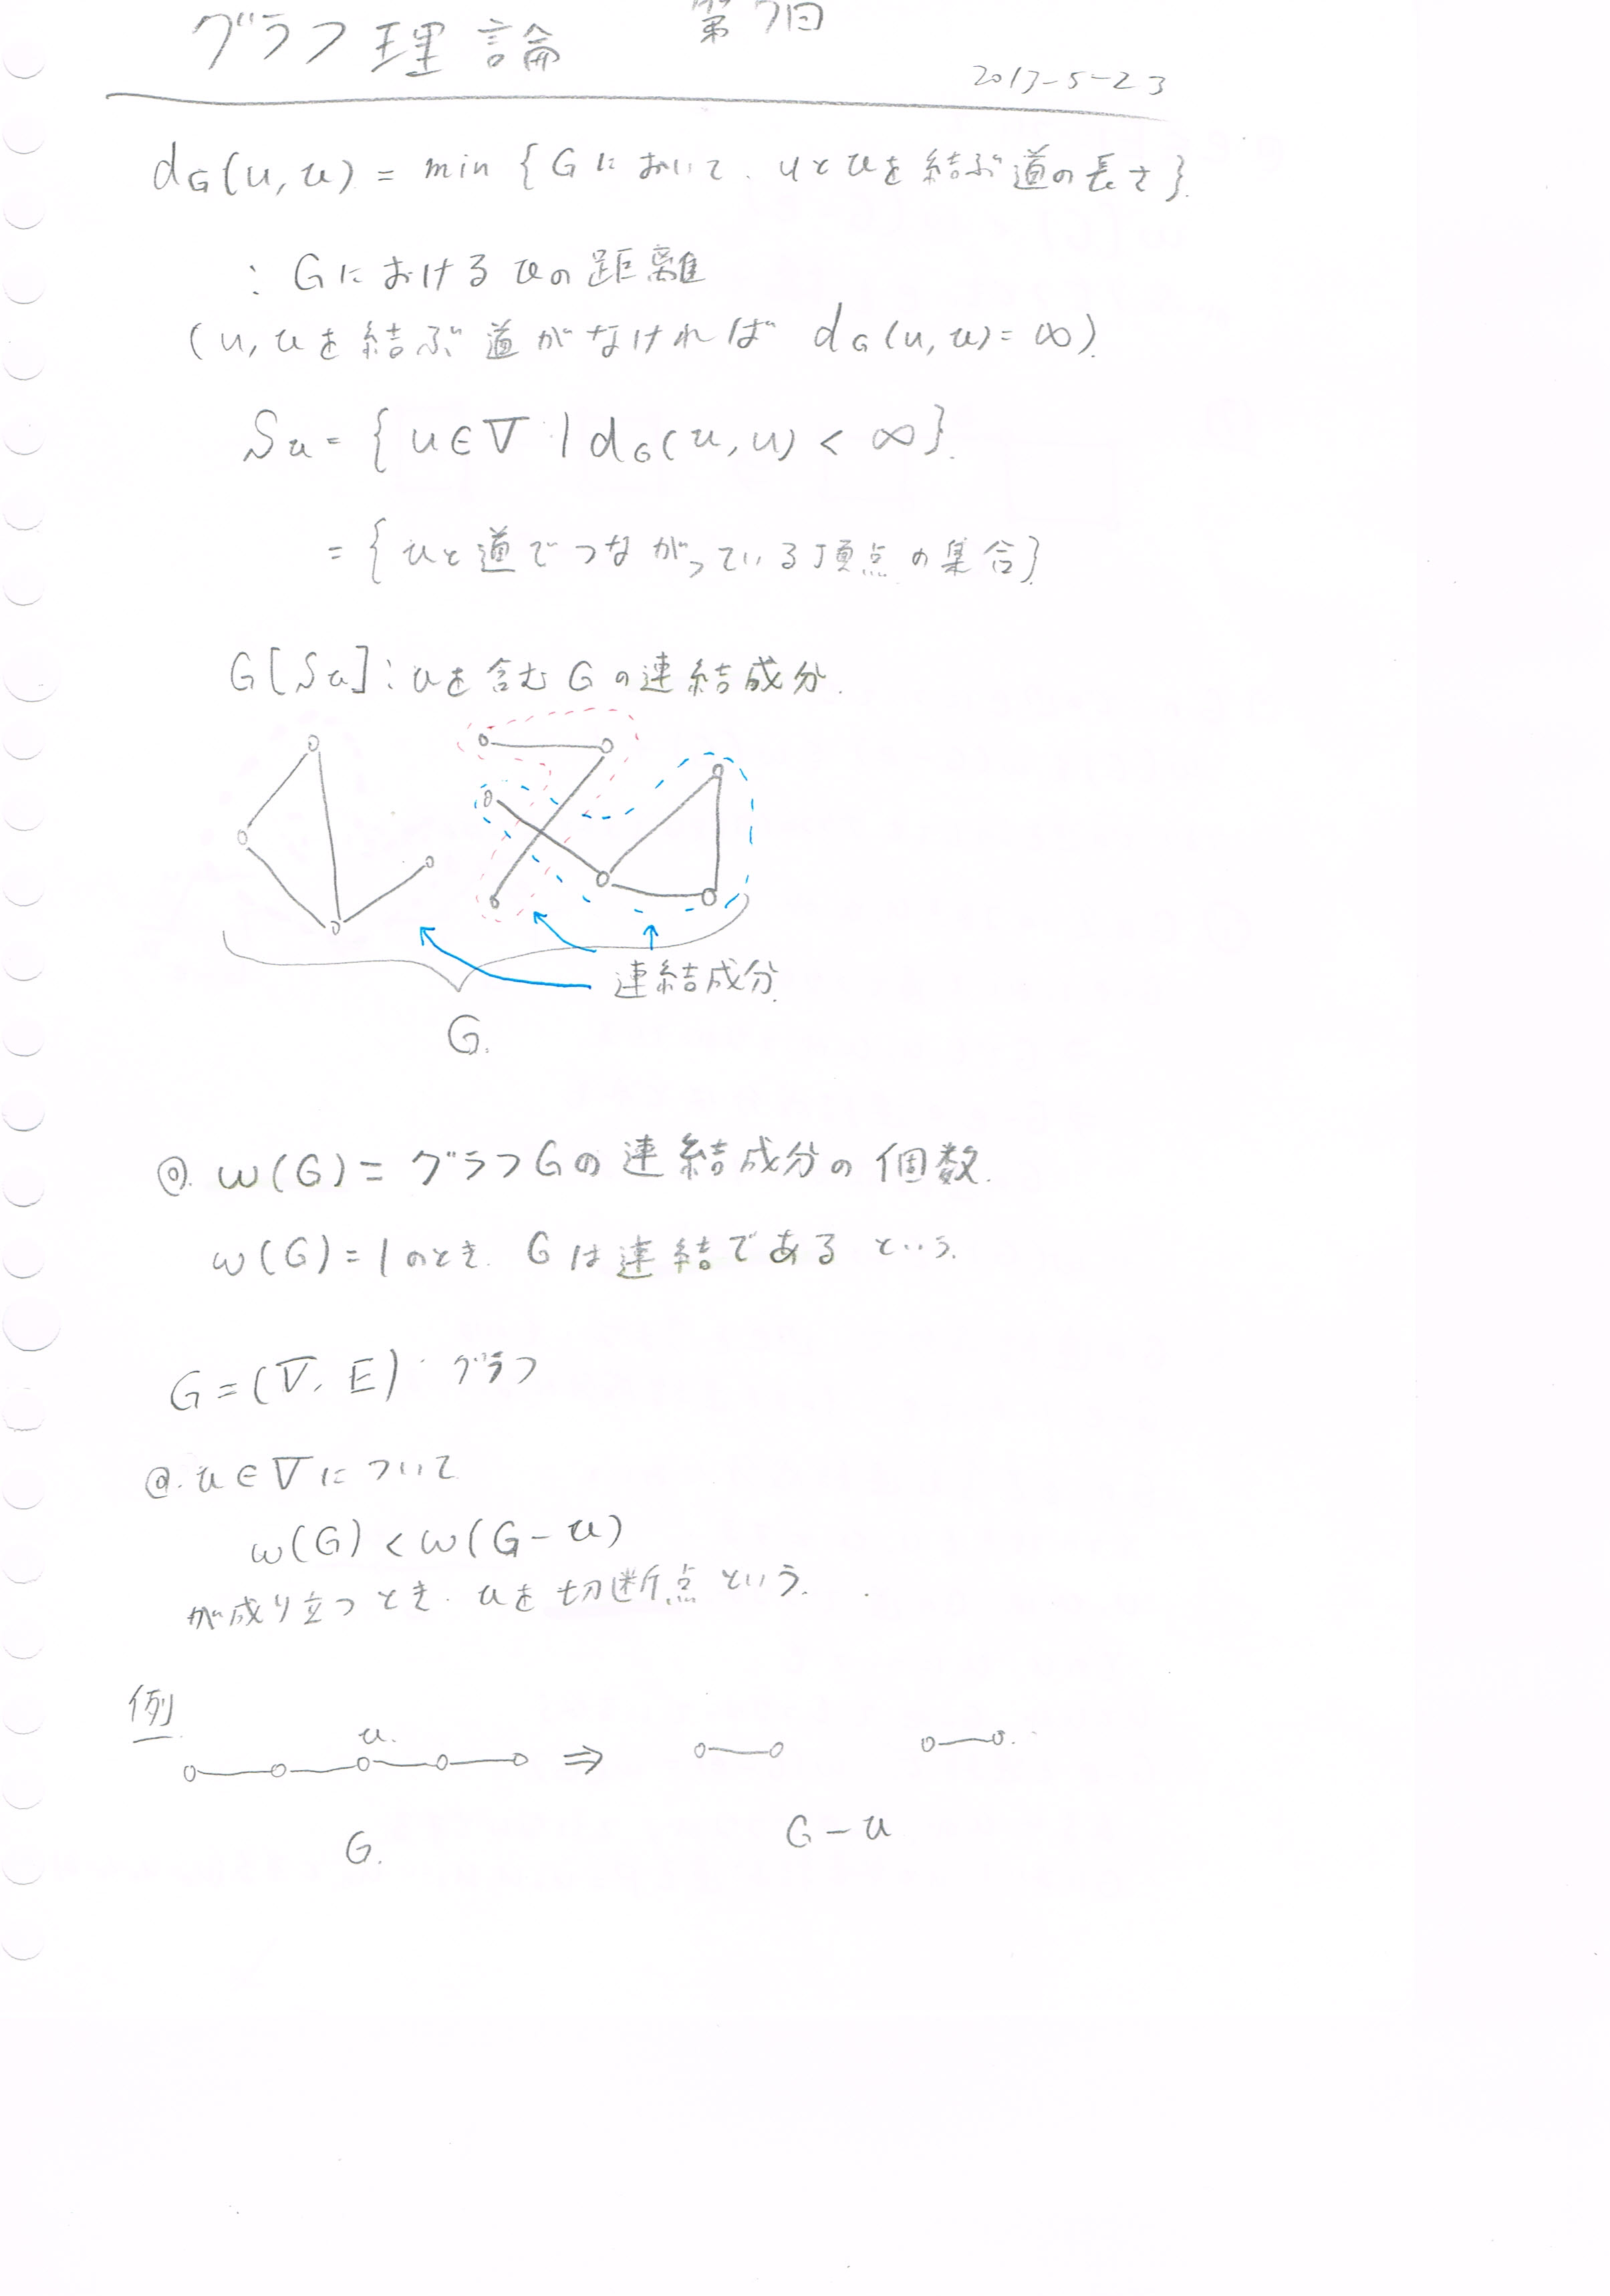 グラフ理論 第7回
2017-5-23
dG(u, v) = min {Gにおいて、uとvを結ぶ道の長さ}.
: Gにおけるvの距離
(u, vを結ぶ道がなければ dG(u, v) = ∞).
Sv = {u∈V | dG(v, u) < ∞}.
= {vと道でつながっている頂点の集合}
G[Sv] : vを含むGの連結成分.
連結成分.
G.
◎. ω(G) = グラフGの連結成分の個数.
ω(G) = 1のとき. Gは連結であるという.
G = (V, E) . グラフ
◎. v∈Vについて
ω(G) < ω(G - v)
が成り立つとき. vを切断点という.
例
v.
⇒
G.
G - v